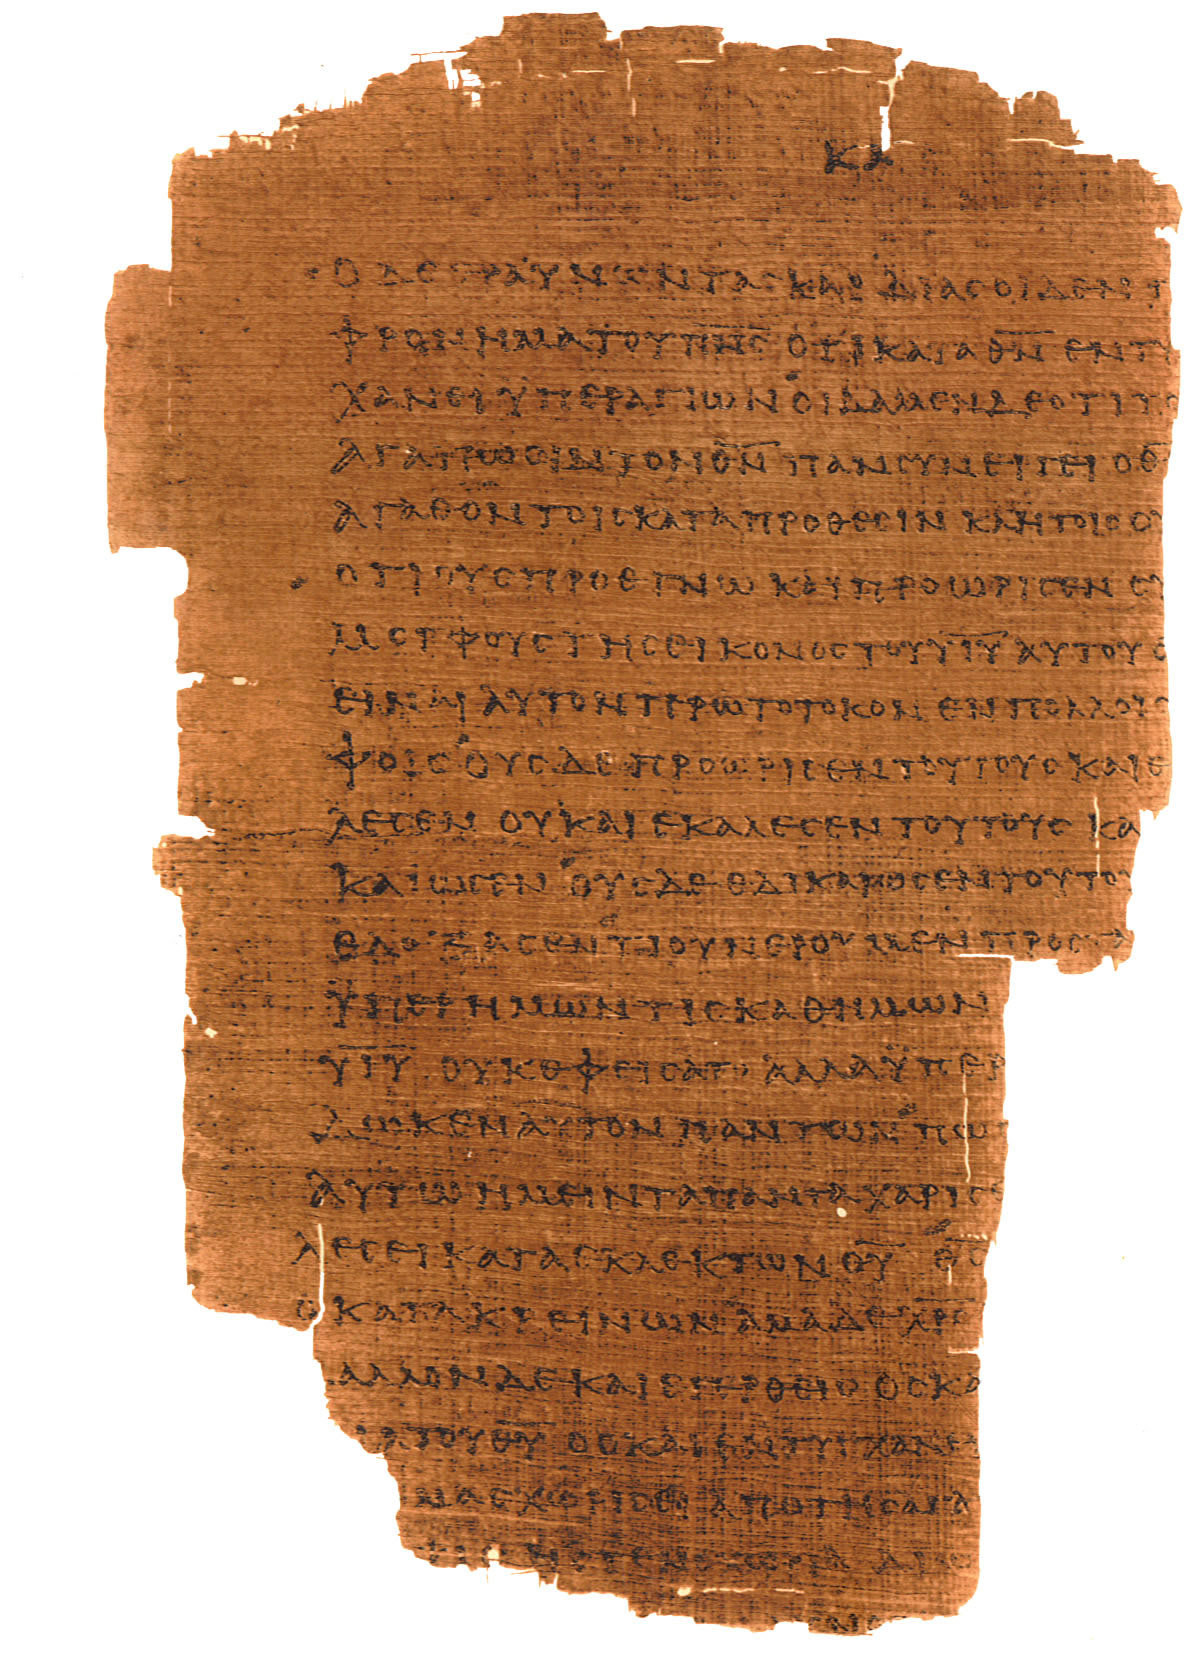 ΚΑ
ΟΔΕΕΡΑΥΝΩΝΤΑΣΚΑΡΔΙΑΣΟΙΔΕΝΤ
ΦΡΟΝΗΜΑΤΟΥΠ̅Ν̅Σ̅ΟΤΙΚΑΤΑΘ̅Ν̅ΕΝΤΥ
ΧΑΝΕΙΫΠΕΡΑΓΙΩΝΟΙΔΑΜΕΝΔΕΟΤΙΤ
ΑΓΑΠΩΣΙΝΤΟΝΘ̅Ν̅ΠΑΝΣΥΝΕΡΓΕΙΟΘ̅
ΑΓΑΘΟΝΤΟΙΣΚΑΤΑΠΡΟΘΕΣΙΝΚΛΗΤΟΙΣΟΥ
ΟΤΙΟΥΣΠΡΟΕΓΝΩΚΑΙΠΡΟΩΡΙΣΕΝΣΥ
ΜΟΡΦΟΥΣΤΗΣΕΙΚΟΝΟΣΤΟΥΥ̅Ι̅Υ̅ΑΥΤΟΥΕ
ΕΙΝΑΙΑΥΤΟΝΠΡΩΤΟΤΟΚΟΝΕΝΠΟΛΛΟΙΣ
ΦΟΙΣΟΥΣΔΕΠΡΟΩΡΙΣΕΝΤΟΥΤΟΥΣΚΑΙΕ
ΛΕΣΕΝΟΥΚΑΙΕΚΑΛΕΣΕΝΤΟΥΤΟΥΣΚΑ
ΚΑΙΩΣΕΝΟΥΣΔΕΕΔΙΚΑΙΩΣΕΝΤΟΥΤΟΥ
ΕΔΟΞΑΣΕΝΤΙΟΥΝΕΡΟΥΜΕΝΠΡΟΣΤΑ
ΫΠΕΡΗΜΩΝΤΙΣΚΑΘΗΜΩΝ
Υ̅Ι̅Υ̅ΟΥΚΕΦΕΙΣΑΤΟΑΛΛΑΫΠΕΡ
ΔΩΚΕΝΑΥΤΟΝΠΑΝΤΩΝΠΩ
ΑΥΤΩΗΜΕΙΝΤΑΠΑΝΤΑΧΑΡΙΣ
ΛΕΣΕΙΚΑΤΑΕΚΛΕΚΤΩΝΘ̅Υ̅Θ̅Σ̅
ΟΚΑΤΑΚΡΕΙΝΩΝΑΜΑΔΕΧ̅Ρ̅Σ̅
ΑΛΛΟΝΔΕΚΑΙΕΓΕΡΘΕΙΣΟΣΚΑ
ΙΑΤΟΥΘ̅Υ̅ΟΣΚΑΙΕΝΤΥΓΧΑΝΕ
ΜΑΣΧΩΡΙΣΕΙΑΠΟΤΗΣΑΓΑ